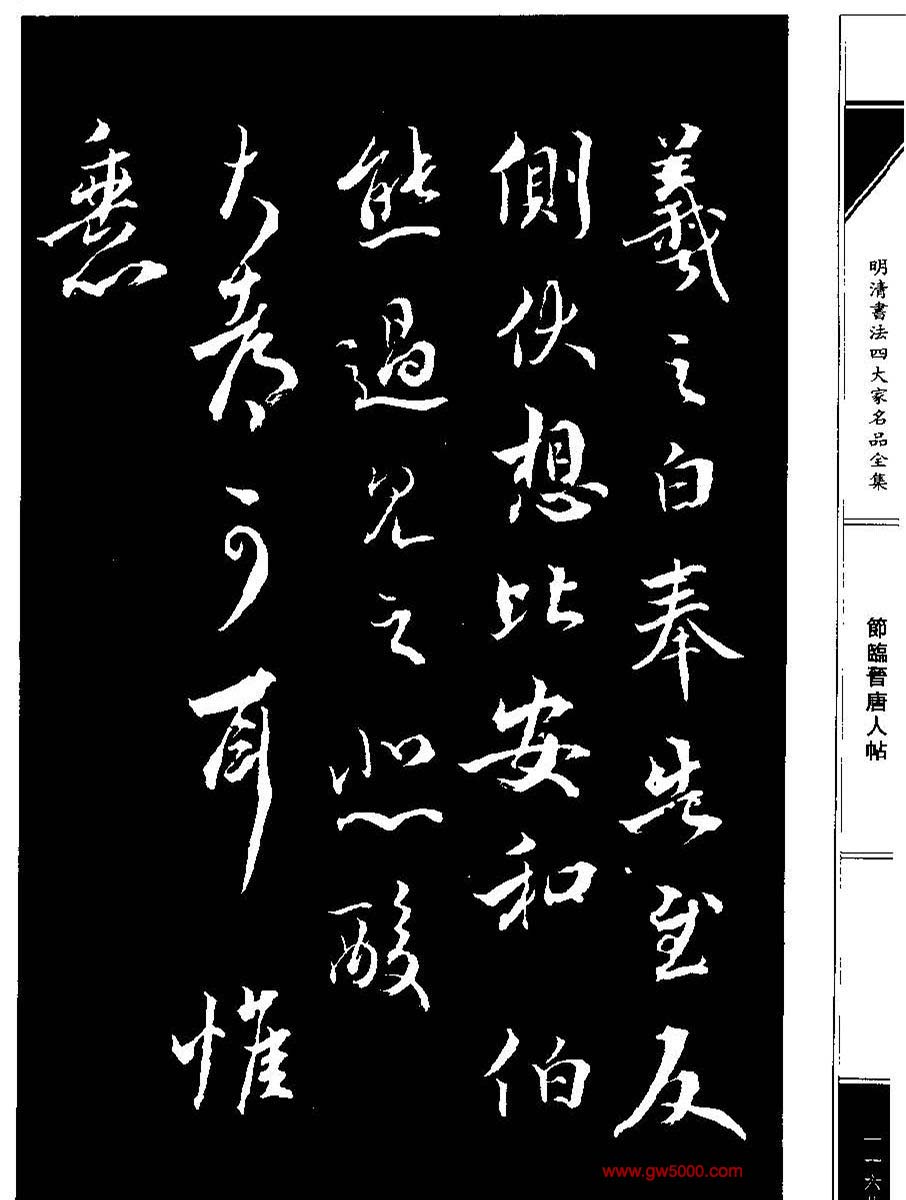 羲之白奉告至反
側伏想比安和伯
熊過見之悲酸
大都可耳惟
悉
明清書法四大家名品全集
節臨晉唐人帖
一一六
www.gw5000.com